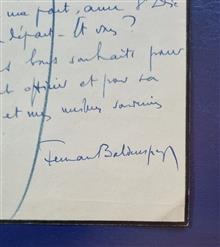 ma part, avec
départ. Et vous ?
bons souhaits pour
et officier et pour sa
et mes meilleurs souvenirs
Fernand Baldensperger